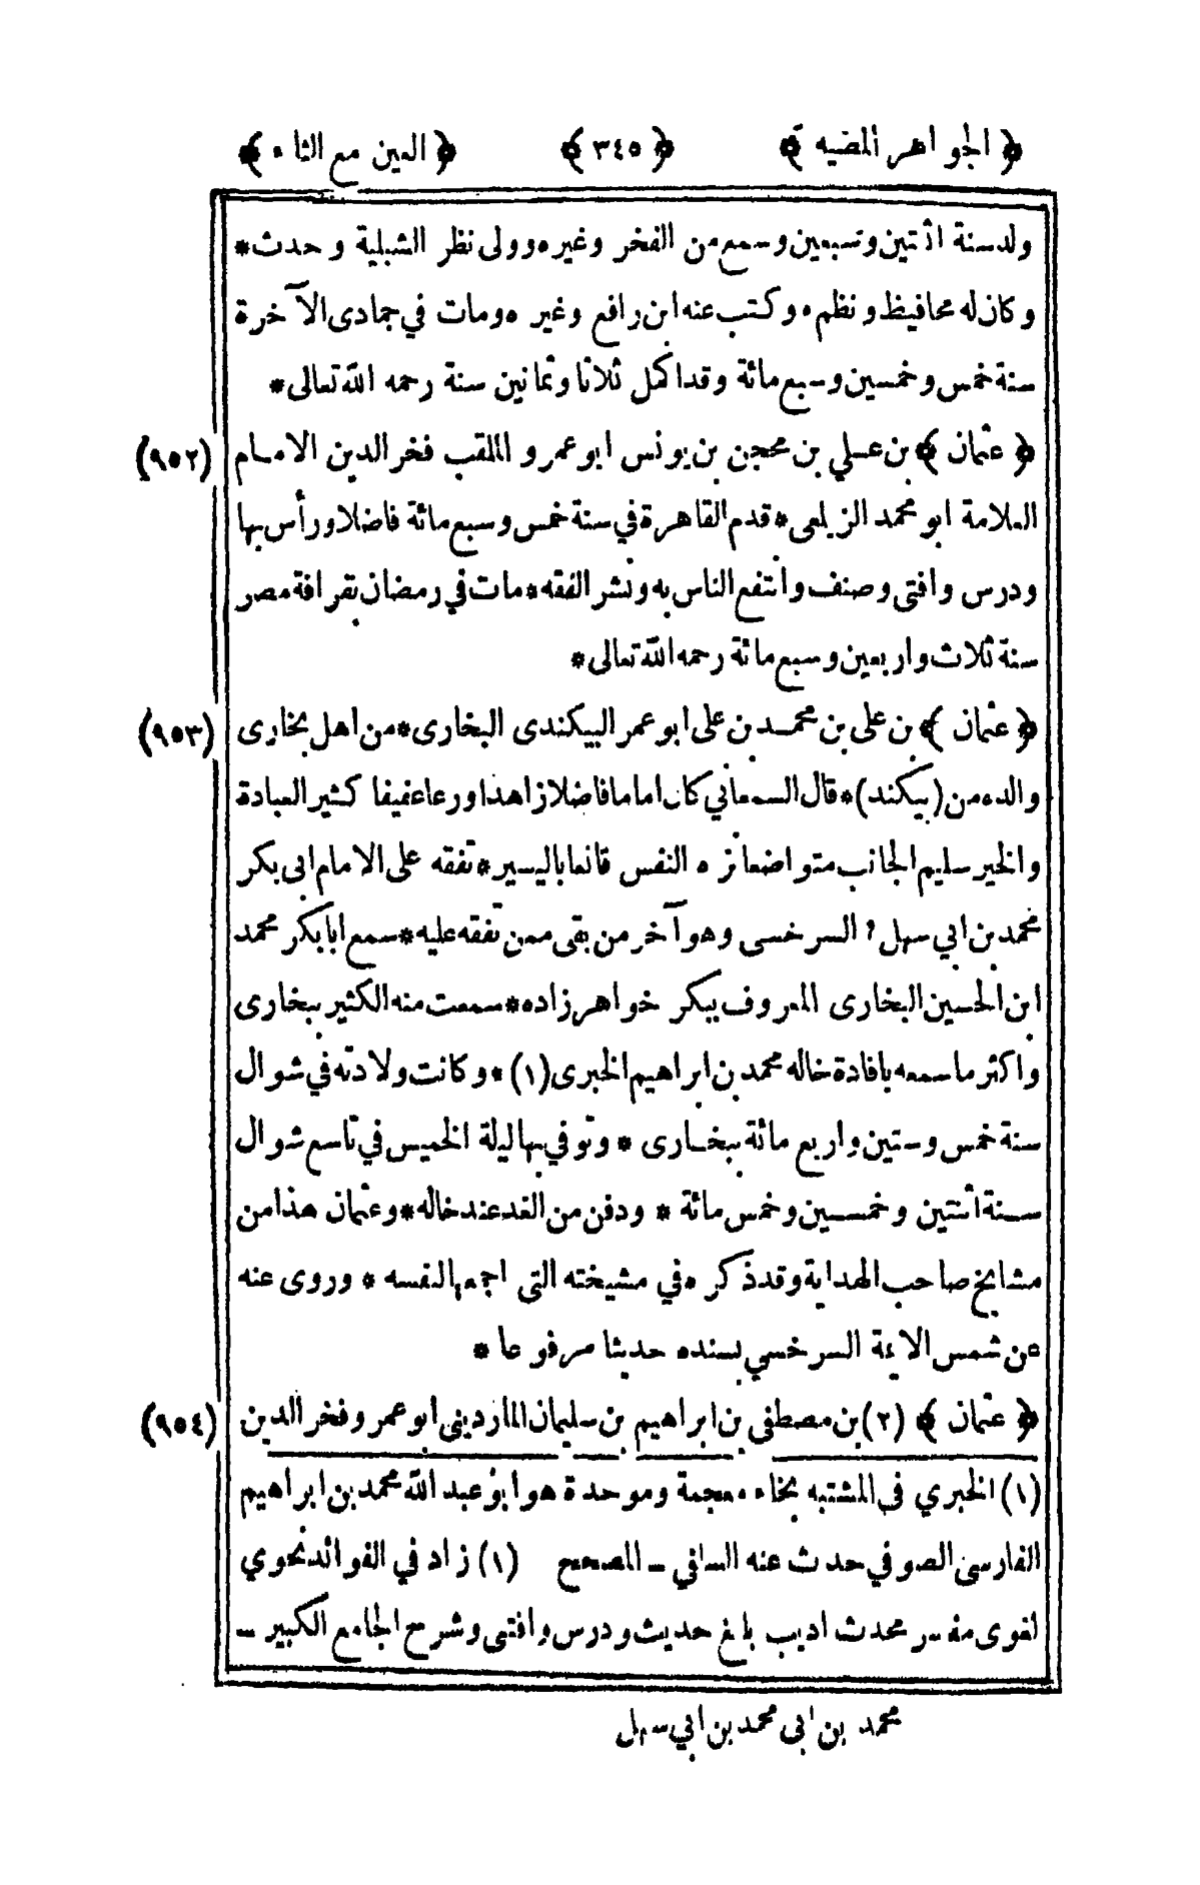 ﴿ الجواهر المضية ﴾ ﴿ ٣٤٥ ﴾ ﴿ العين مع الثاء ﴾
ولد سنة اثنتين وتسعين وسمع من الفخر وغيره وولى نظر الشبلية وحدث *
وكان له محافيظ ونظم * وكتب عنه ابن رافع وغيره ومات في جمادى الآخرة
سنة خمس وخمسين وسبع مائة وقد اكمل ثلاثا وثمانين سنة رحمه الله تعالى *
(٩٥٢) ﴿ عثمان ﴾ بن علي بن محجن بن يونس ابو عمرو الملقب فخر الدين الامام
العلامة ابو محمد الزيلعى * قدم القاهرة في سنة خمس وسبع مائة فاضلا ورأس بها
ودرس وافتى وصنف وانتفع الناس به ونشر الفقه * مات في رمضان بقرافة مصر
سنة ثلاث واربعين وسبع مائة رحمه الله تعالى *
(٩٥٣) ﴿ عثمان ﴾ بن على بن محمد بن على ابو عمر البيكندى البخارى * من اهل بخارى
والده من (بيكند) * قال السمعاني كان اماما فاضلا زاهدا ورعا عفيفا كثير العبادة
والخير سليم الجانب متواضعا نزه النفس قانعا باليسير * تفقه على الامام ابى بكر
محمد بن ابي سهل ? السرخسى وهو آخر من بقى ممن تفقه عليه * سمع ابا بكر محمد
ابن الحسين البخارى المعروف ببكر خواهرزاده * سمعت منه الكثير ببخارى
واكثر ما سمعه بافادة خاله محمد بن ابراهيم الخبرى (١) * وكانت ولادته في شوال
سنة خمس وستين واربع مائة ببخارى * وتوفي بها ليلة الخميس في تاسع شوال
سنة اثنتين وخمسين وخمس مائة * ودفن من الغد عند خاله * وعثمان هذا من
مشايخ صاحب الهداية وقد ذكره في مشيخته التى اجمعها لنفسه * وروى عنه
عن شمس الايمة السرخسي بسنده حديثا مرفوعا *
(٩٥٤) ﴿ عثمان ﴾ (٢) بن مصطفى بن ابراهيم بن سليمان الماردينى ابو عمر وفخر الدين
(١) الخبري في المشتبه بخاء معجمة وموحدة هو ابو عبد الله محمد بن ابراهيم
الفارسى الصوفي حدث عنه السلفي ـ المصحح (١) زاد في الفوائد نحوي
لغوى مفسر محدث اديب بلغ حديث ودرس وافتى وشرح الجامع الكبير ـ
محمد بن ابى محمد بن ابي سهل